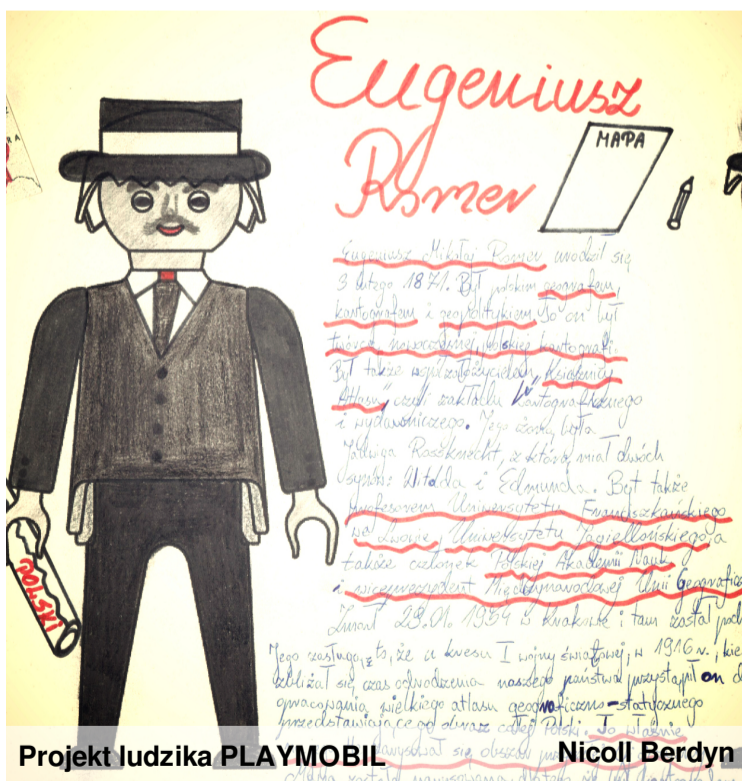 Eugeniusz
Romer
MAPA
Eugeniusz Mikołaj Romer urodził się
3 lutego 1871. Był polskim geografem,
kartografem i geopolitykiem. To on był
twórcą nowoczesnej polskiej kartografi.
Był także współzałożycielem "Książnicy
Atlas", czyli zakładu kartograficznego
i wydawniczego. Jego żoną była
Jadwiga Rossknecht, z którą miał dwóch
synów: Witolda i Edmunda. Był także
profesorem Uniwersytetu Franciszkańskiego
we Lwowie, Uniwersytetu Jagiellońskiego, a
także członek Polskiej Akademii Nauk
i wiceprezydent Międzynarodowej Unii Geografic
Zmarł 28.01.1954 w Krakowie i tam został poch
Jego zasługą to, że u kresu I wojny światowej, w 1916 r., kie
zbliżał się czas odrodzenia naszego państwa przystąpił on d
opracowania wielkiego atlasu geograficzno-statycznego
przedstawiającego obraz całej Polski. To właśnie
się obszar
Mapa została narysowana
POLSKI
Projekt ludzika PLAYMOBIL
Nicoll Berdyn